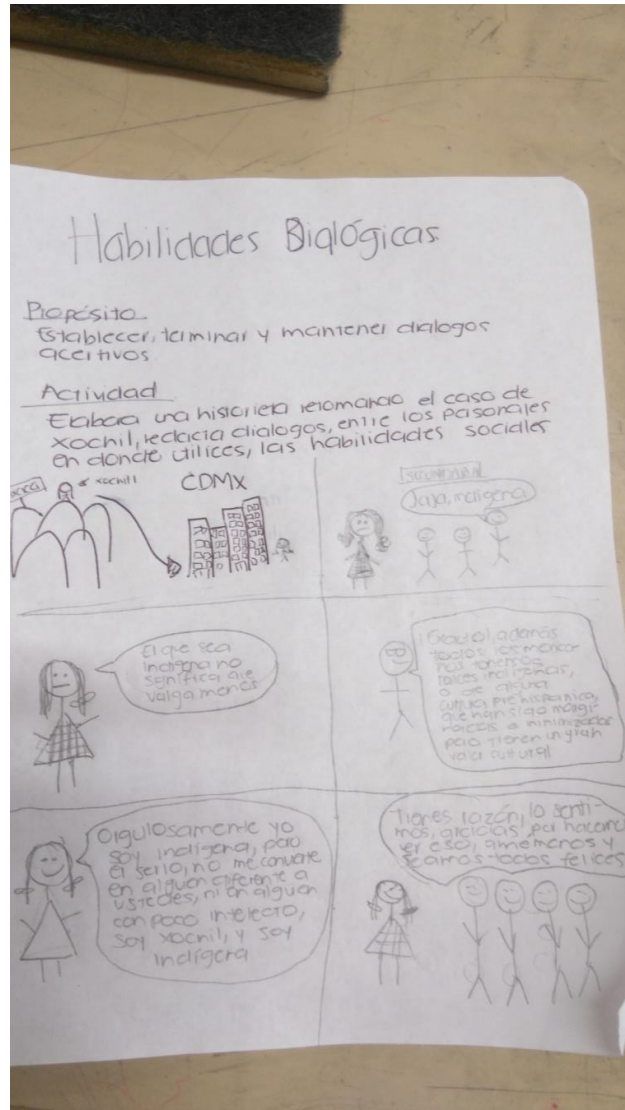 Habilidades Dialógicas
Propósito
Establecer, terminar y mantener dialogos
acertivos
Actividad
Elabora una historieta retomando el caso de
xochil, redacta dialogos, entre los personales
en donde utilices, las habilidades sociales
xochitl
CDMX
Jaja, indígena
El que sea
indígena no
significa que
valga menos
además
todos los mexica
nos tenemos
raices indígenas,
o de alguna
cultura prehispanica,
que han sigo margi
nadas o minimizadas
pero tienen un gran
valor cultural
Orgulosamente yo
soy indígena, pero
el serlo, no me convierte
en alguen diferente a
ustedes, ni en alguen
con poco intelecto,
soy xochil, y soy
indígena
Tienes razón, lo senti-
mos, gracias por hacerno
ver eso, amemonos y
seamos todos felices